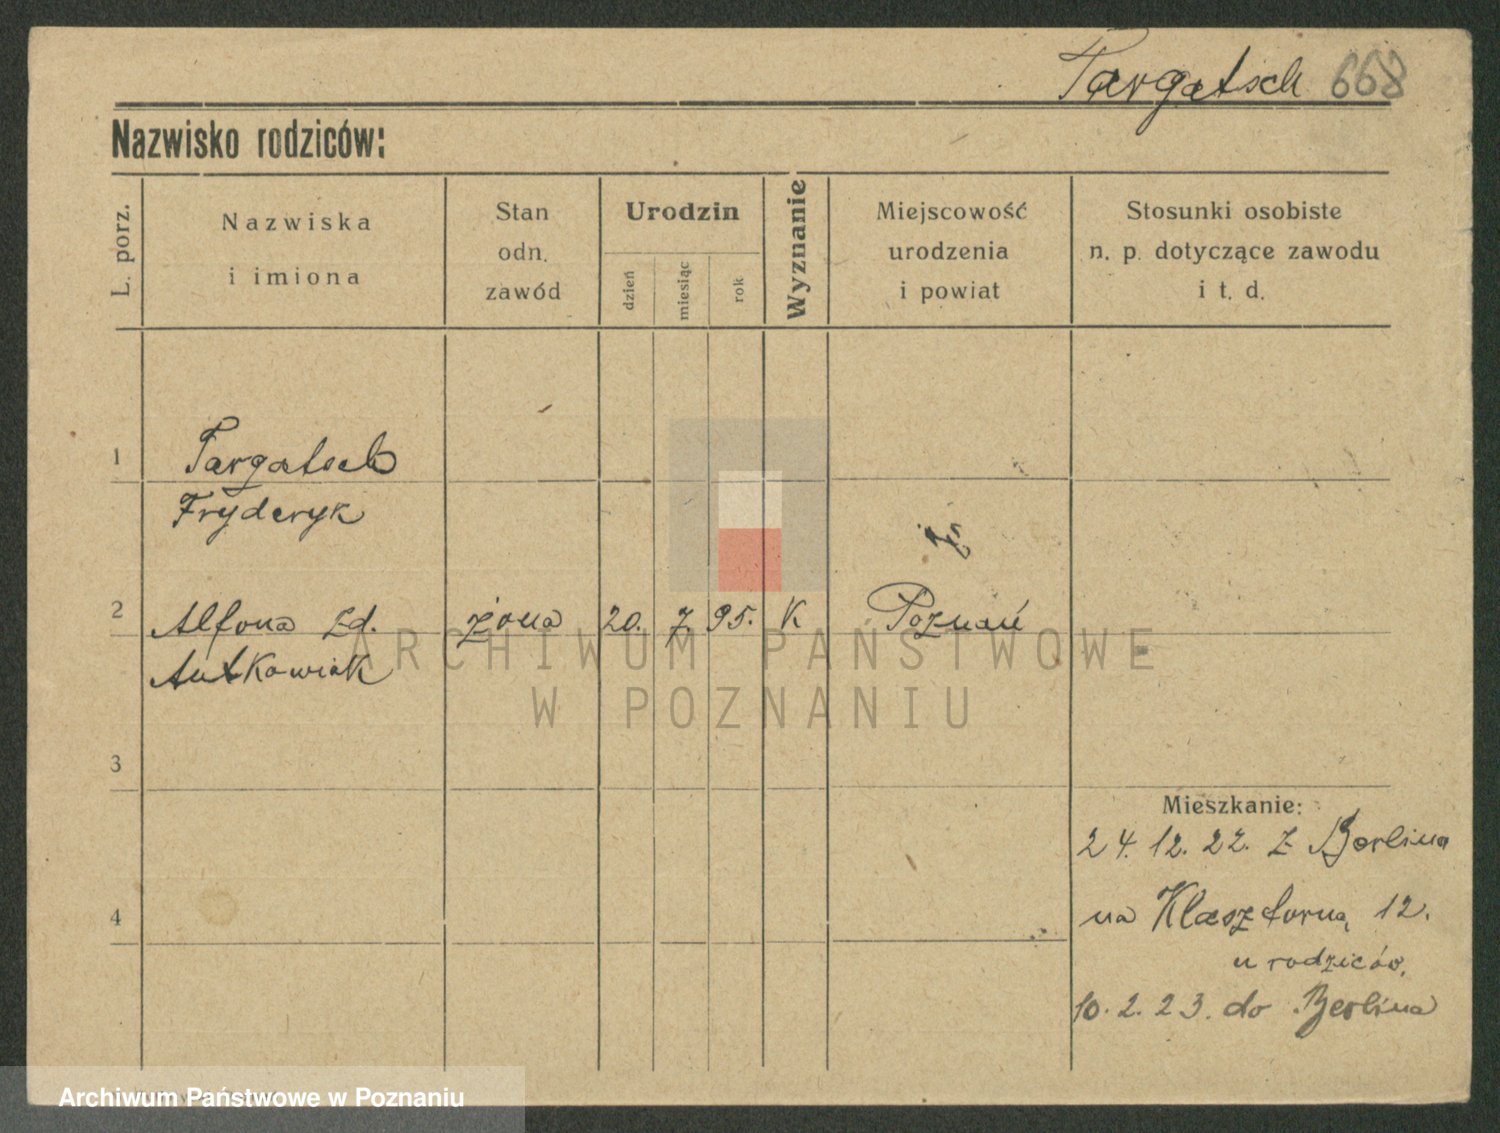 Targatsch 668
Nazwisko rodziców:
L. porz.
Nazwiska
i imiona
Stan
odn.
zawód
Urodzin
dzień
miesiąc
rok
Wyznanie
Miejscowość
urodzenia
i powiat
Stosunki osobiste
n. p. dotyczące zawodu
i t. d.
1 Targatsch
Fryderyk
2 Alfona zd. żona 20. 7. 95. K Poznań
Antkowiak
ARCHIWUM PAŃSTWOWE
W POZNANIU
3
Mieszkanie:
24. 12. 22. z Berlina
4 na Klasztorną 12.
u rodziców.
10. 2. 23. do Berlina
Archiwum Państwowe w Poznaniu